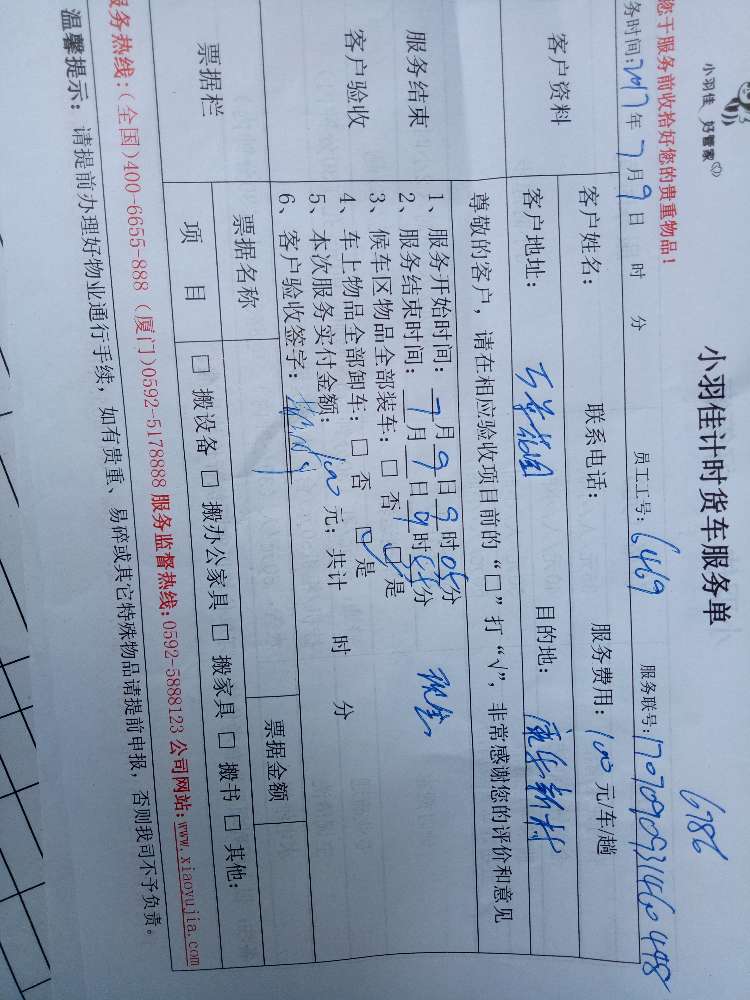 小羽佳 好管家
小羽佳计时货车服务单
6786
您于服务前收拾好您的贵重物品!
务时间:2017年7月9日 时 分 员工工号: 6469 服务联号: 1707090931460448
客户资料
客户姓名: 联系电话: 服务费用: 100元/车/趟
客户地址: 目的地: 康乐新村
尊敬的客户,请在相应验收项目前的“□”打“√”,非常感谢您的评价和意见
服务结束
客户验收
1、服务开始时间: 7月9日9时05分
2、服务结束时间: 7月9日9时55分 现金
3、候车区物品全部装车: □ 否 ☑ 是
4、车上物品全部卸车: □ 否 ☑ 是
5、本次服务实付金额: 100元; 共计 时 分
6、客户验收签字:
票据栏
票据名称 票据金额
项 目 □ 搬设备 □ 搬办公家具 □ 搬家具 □ 搬书 □ 其他:
服务热线:(全国)400-6655-888 (厦门)0592-5178888 服务监督热线:0592-5888123 公司网站:www.xiaoyujia.com
温馨提示: 请提前办理好物业通行手续,如有贵重、易碎或其它特殊物品请提前申报,否则我司不予负责。